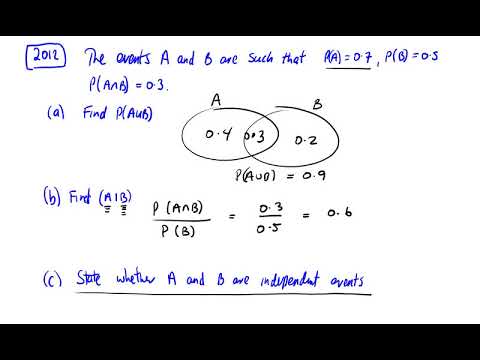 2012 The events A and B are such that P(A) = 0.7, P(B) = 0.5
P(A∩B) = 0.3.
(a) Find P(A∪B)
A B
0.4 0.3 0.2
P(A∪B) = 0.9
(b) Find (A|B)
P(A∩B) / P(B) = 0.3 / 0.5 = 0.6
(c) State whether A and B are independent events